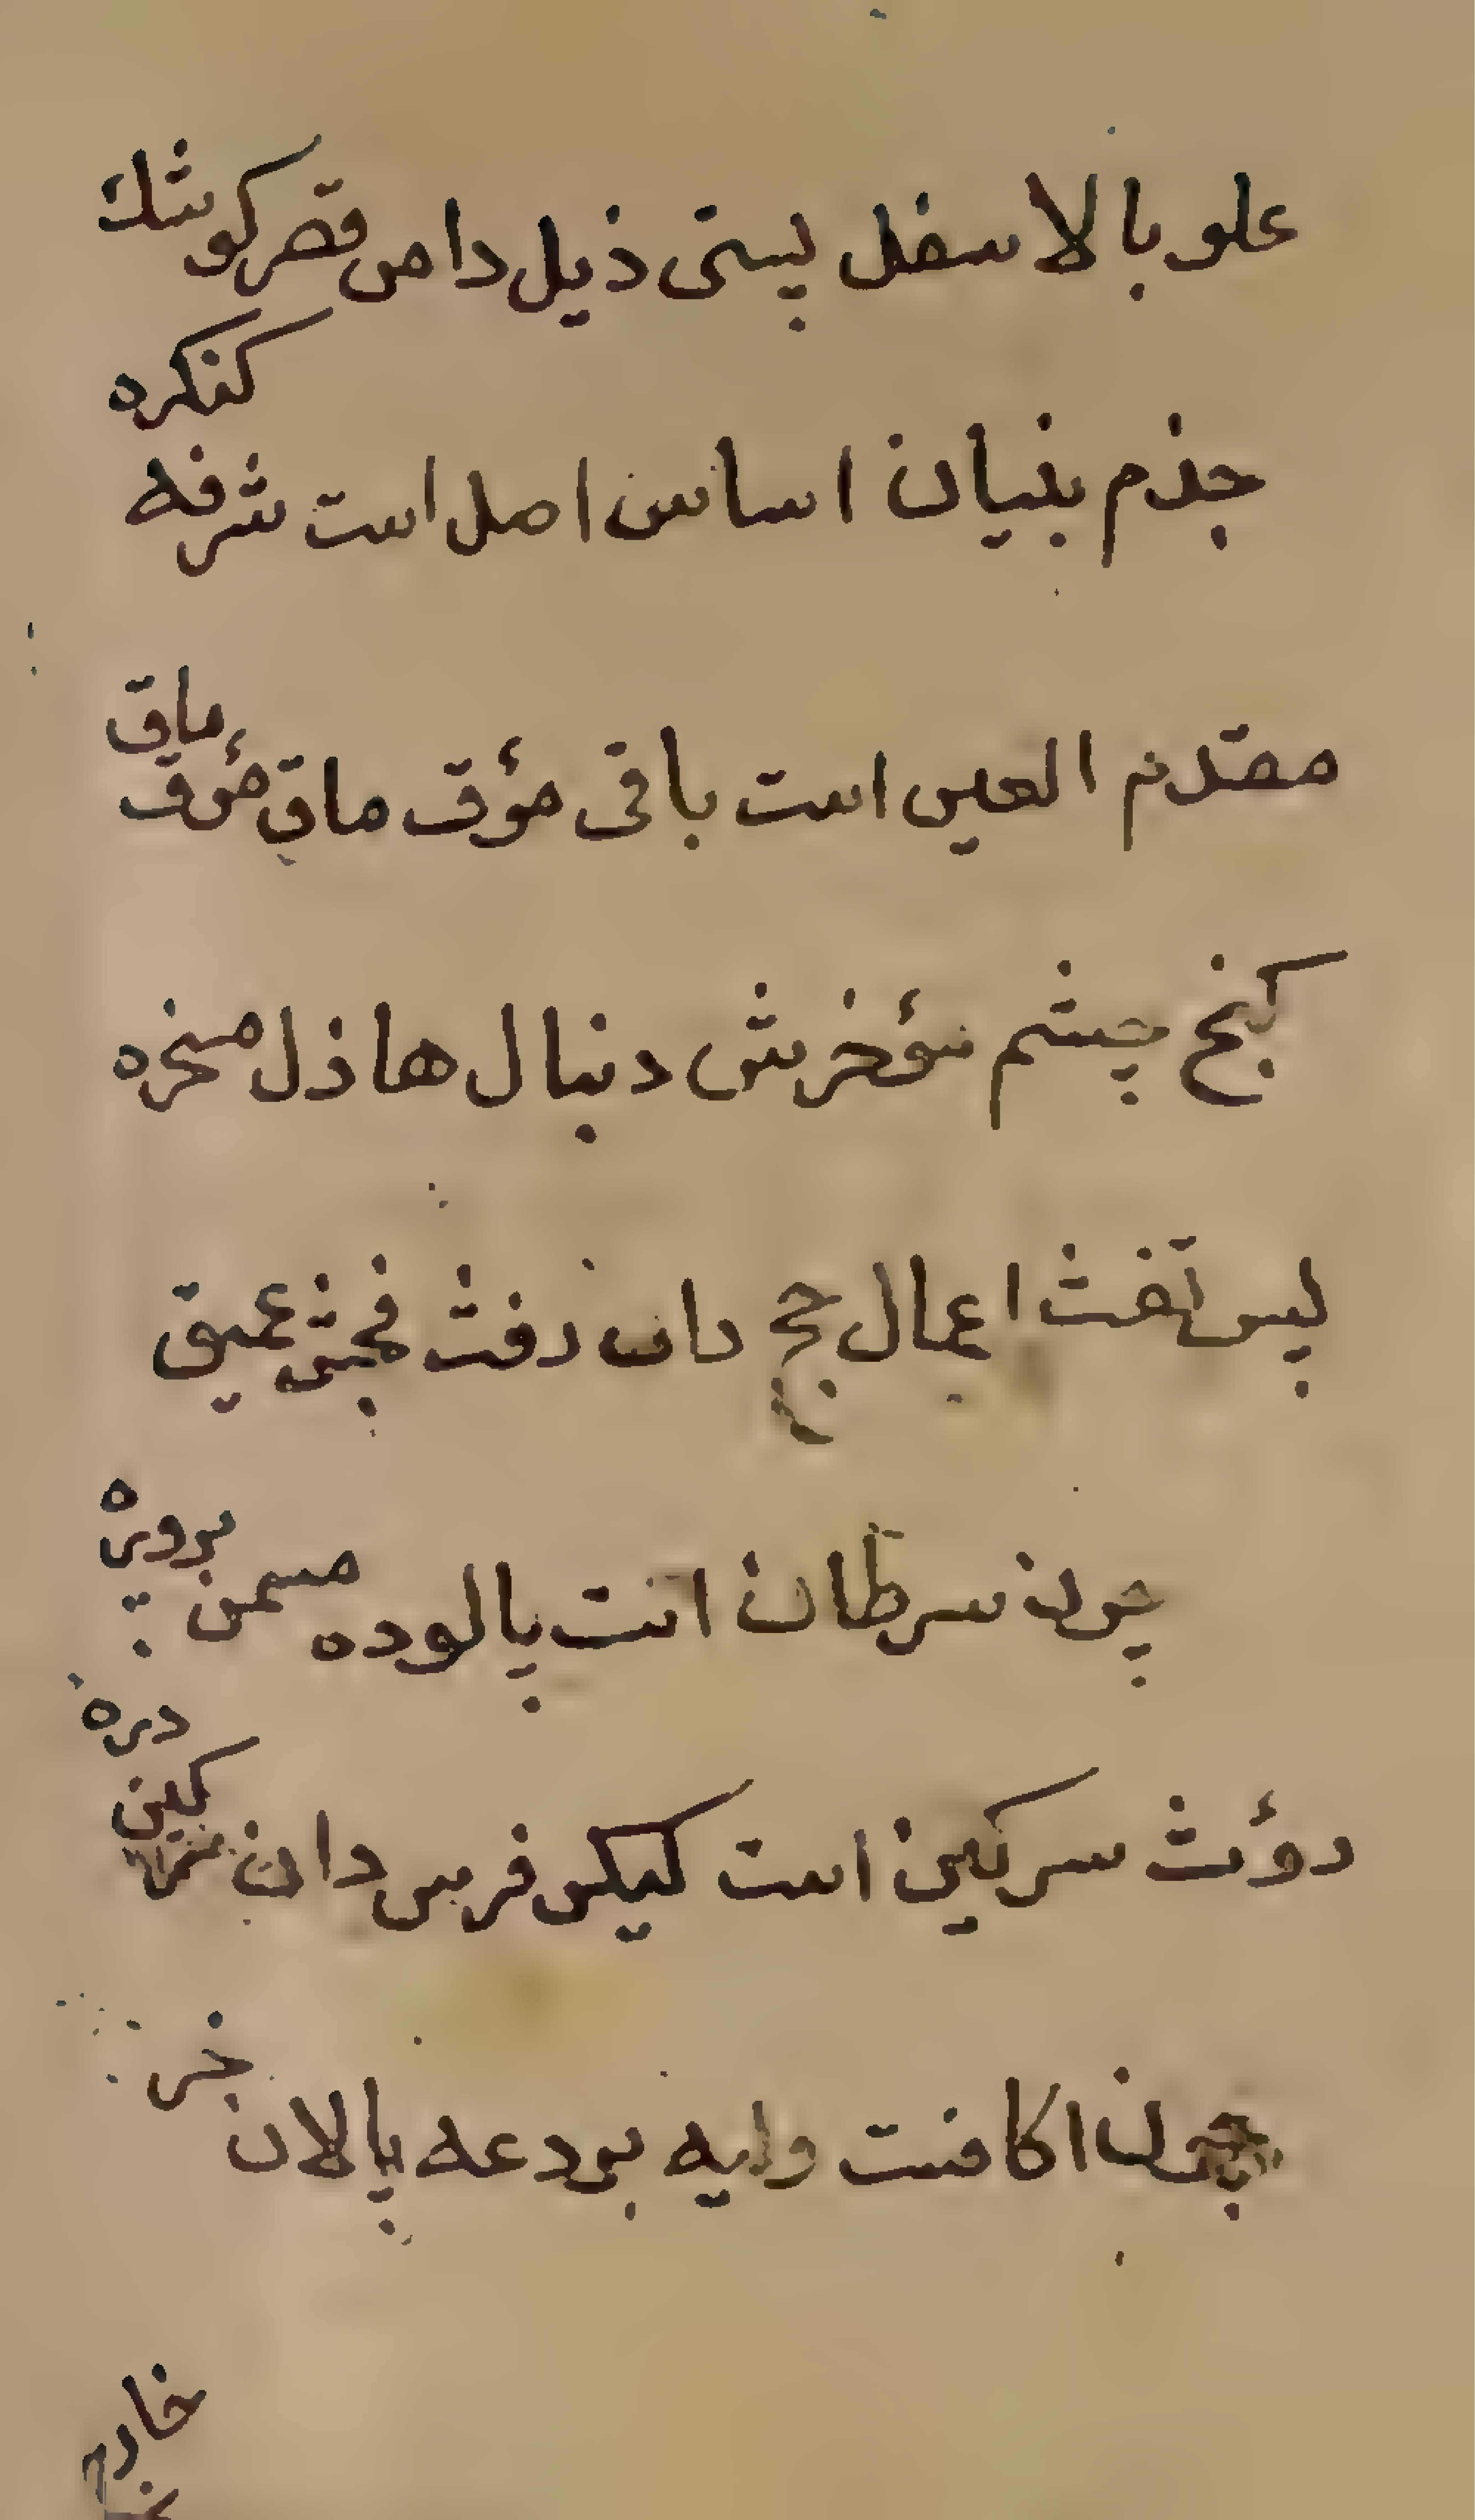 علو بالا سفل پستی ذیل دامن قصر کوشك
کنکره
جذم بنیان اساس اصل است شرفه
ماقی
مقدم العین است باقی مؤق ماق مؤق
کنج چشم مؤخرش دنبال هاذل مسخره
پس تفث اعمال حج دان رفث فحش عمیق
پرویزه
چون سرطان است پالوده مسمن
دره
کین
روث سرکین است لیکن فرس دان
خر
چون اکافت وایه بردعه پالان
خاریه